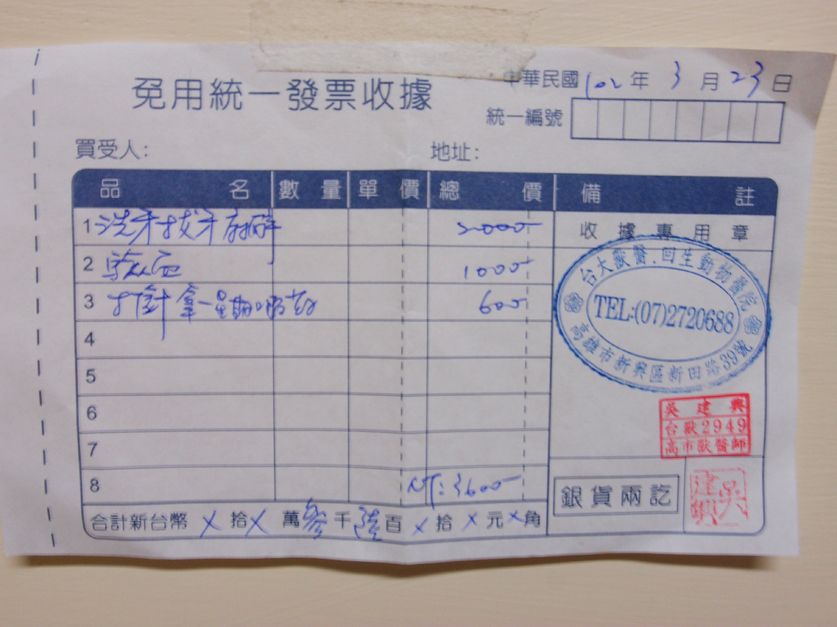 免用統一發票收據
中華民國 102 年 3 月 23 日
統一編號
買受人: 地址:
品名 數量 單價 總價 備註
1 洗牙拔牙 2000-
收據專用章
2 驗血 1000-
3 打針拿一星期 600-
4
5
6
7
8 NT: 3600-
合計新台幣 X 拾 X 萬 參 千 陸 百 X 拾 X 元 X 角
台大獸醫.回生動物醫院
TEL:(07)2720688
高雄市新興區新田路39號
吳建興
台獸2949
高市獸醫師
銀貨兩訖
吳建興